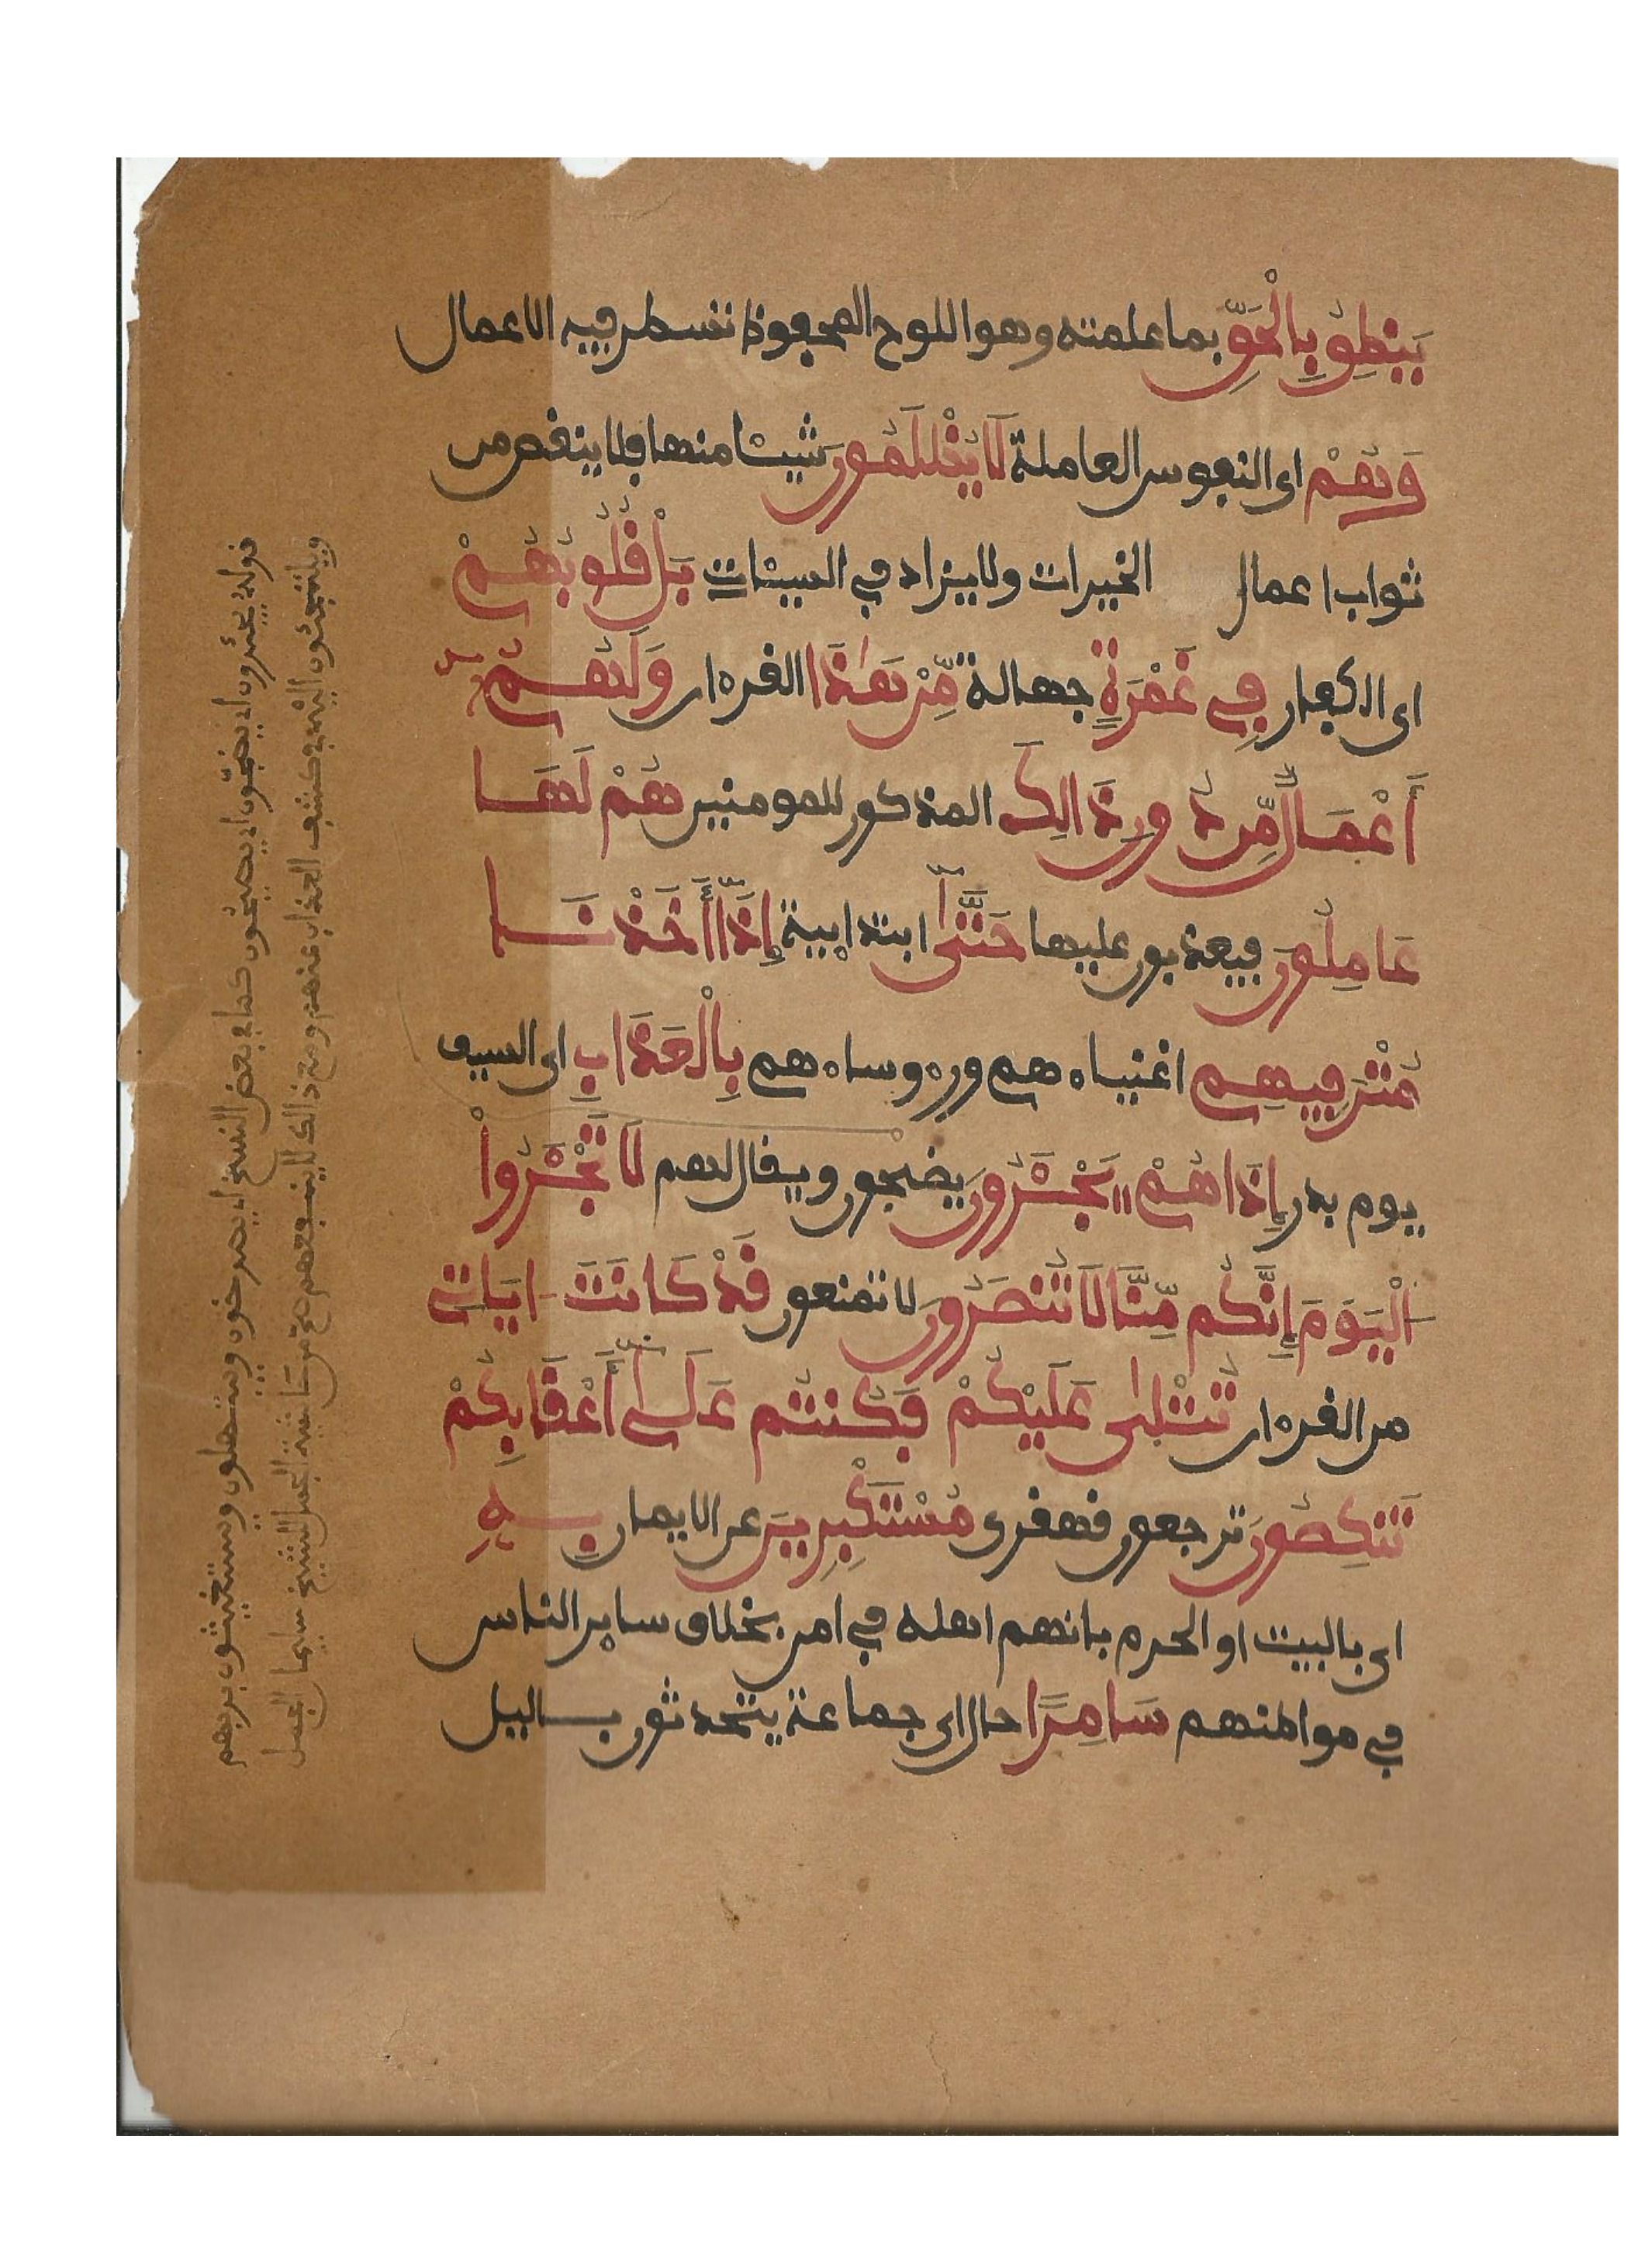 يَنطِقُ بِالْحَقِّ بما عملته وهو اللوح المحفوظ تسطر فيه الاعمال
وَهُمْ اى النفوس العاملة لَا يُظْلَمُونَ شيـٔا منها فلا ينقص من
ثواب اعمال الخيرات ولا يزاد في السيـٔات بَلْ قُلُوبُهُمْ
اى الكفار فِي غَمْرَةٍ جهالة مِّنْ هَٰذَا القرءان وَلَهُمُۥٓ
أَعْمَالٌ مِّن دُونِ ذَالِكَ المذكور للمومنين هُمْ لَهَا
عَامِلُونَ فيعذبون عليها حَتَّىٰٓ ابتداىية إِذَآ أَخَذْنَا
مُتْرَفِيهِم اغنياءهم ورءوساءهم بِالْعَذَابِ اى السيف
يوم بدر إِذَا هُمْ يَجْـَٔرُونَ يضجون ويقال لهم لَا تَجْـَٔرُواْ
الْيَوْمَ إِنَّكُم مِّنَّا لَا تُنصَرُونَ لا تمنعون قَدْ كَانَتَ ايَاتِي
من القرءان تُتْلَىٰ عَلَيْكُمْ فَكُنتُمْ عَلَىٰٓ أَعْقَابِكُمْ
تَنكِصُونَ ترجعون قهقرى مُسْتَكْبِرِينَ عن الايمان بِهِ
اى بالبيت او الحرم بانهم اهله في امن بخلاف ساير الناس
في مواطنهم سَامِرًا حال اى جماعة يتحدثون باليل
قوله يجـٔرون اى يضجون اى يصيحون كما في بعض النسخ اى يصرخون ويبتهلون ويستغيثون بربهم
ويلتجـٔون اليه في كشف العذاب عنهم ومع ذالك لا ينفعهم من حاشية الجمل الشيخ سليمان الجمل